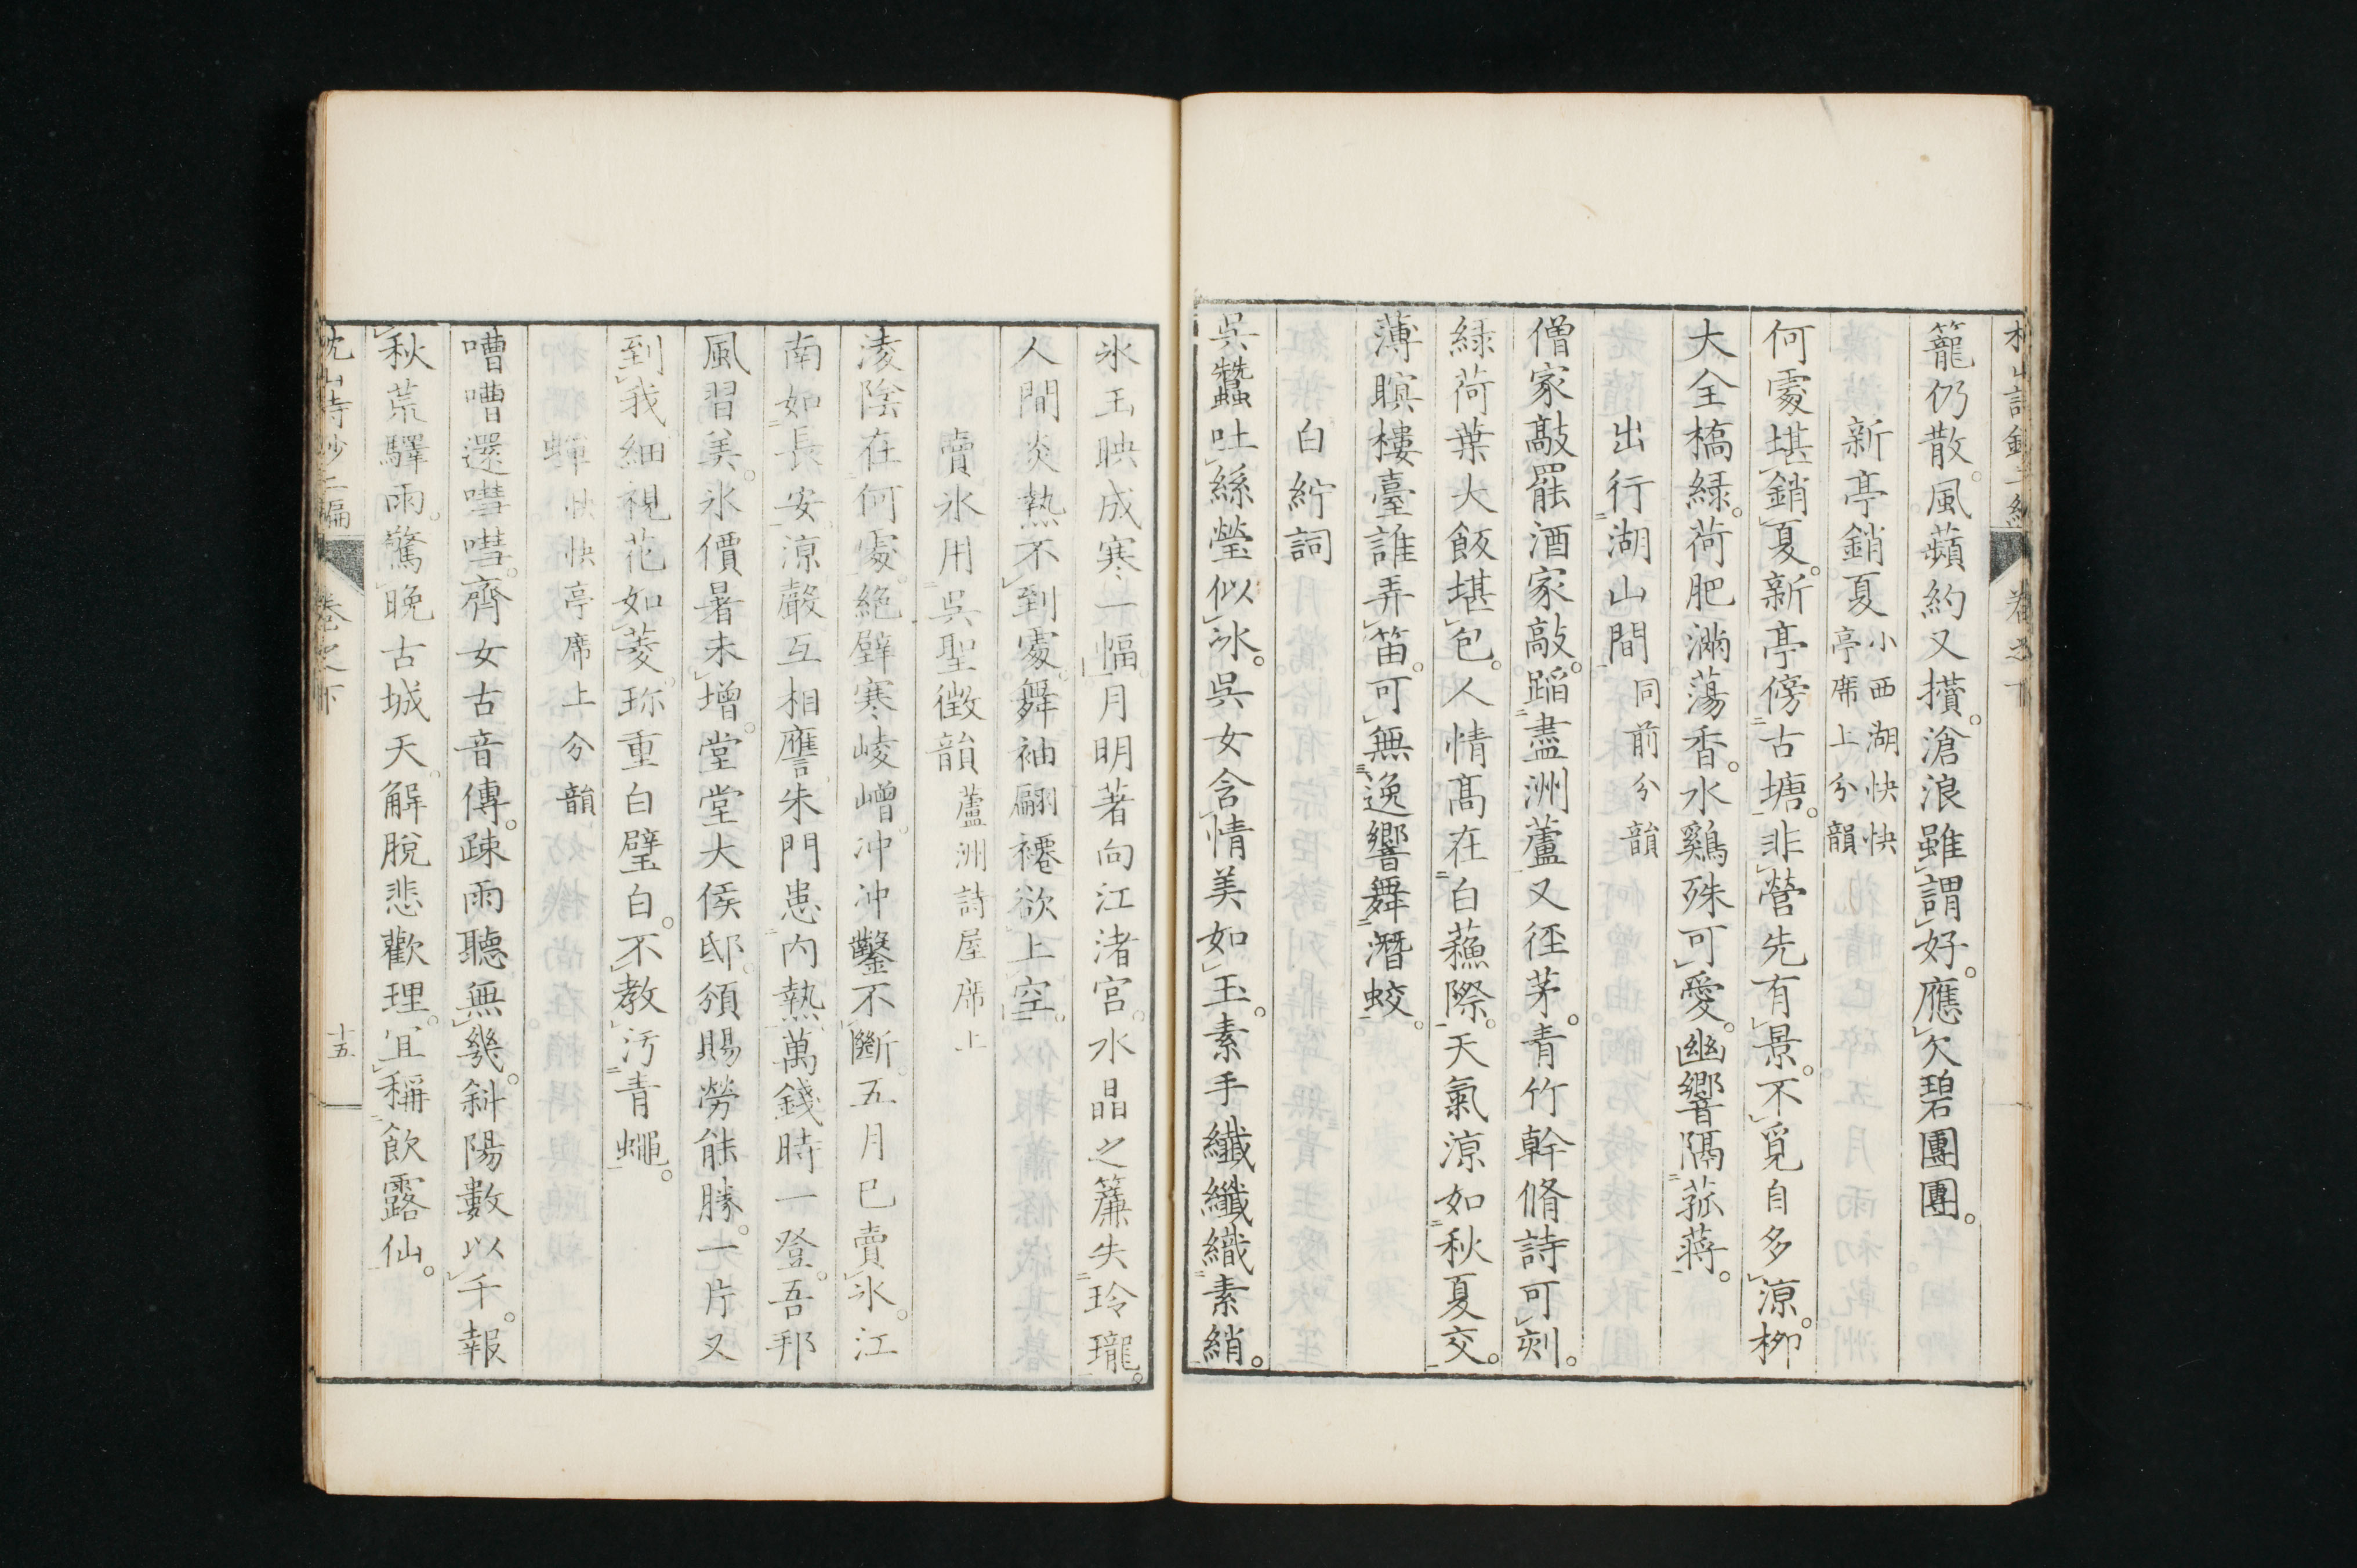 籠仍散。風蘋約又攢。滄浪雖謂好。應欠碧團團。
新亭銷夏 小西湖快快亭席上分韻
何處堪銷夏。新亭傍古塘。非營先有景。不覓自多涼。柳
大全橋綠。荷肥滿蕩香。水鷄殊可愛。幽響隔菰蔣。
出行湖山間 同前分韻
僧家敲罷酒家敲。蹈盡洲蘆又徑茅。青竹幹脩詩可刻。
綠荷葉大飯堪包。人情髙在白蘓際。天氣涼如秋夏交。
薄暝樓臺誰弄笛。可無逸響舞潛蛟。
白紵詞
吳蠶吐絲瑩似氷。吳女含情美如玉。素手纖纖織素綃。
氷玉映成寒一幅。月明著向江渚宮。水晶之簾失玲瓏。
人間炎熱不到處。舞袖翩褼欲上空。
賣氷用吳聖徵韻 蘆洲詩屋席上
淩陰在何處。絶壁寒崚嶒。沖沖鑿不斷。五月已賣氷。江
南如長安。涼聲互相譍。朱門患内熱。萬錢時一登。吾邦
風習美。氷價暑未增。堂堂大侯邸。頒賜勞能勝。一片又
到我。細視花如菱。珎重白璧白。不教汚青蠅。
蟬 快快亭席上分韻
嘈嘈還嘒嘒。齊女古音傳。疎雨聽無幾。斜陽數以千。報
秋荒驛雨。驚晩古城天。解脫悲歡理。宜稱飲露仙。
枕山詩鈔二編 卷之下 十五